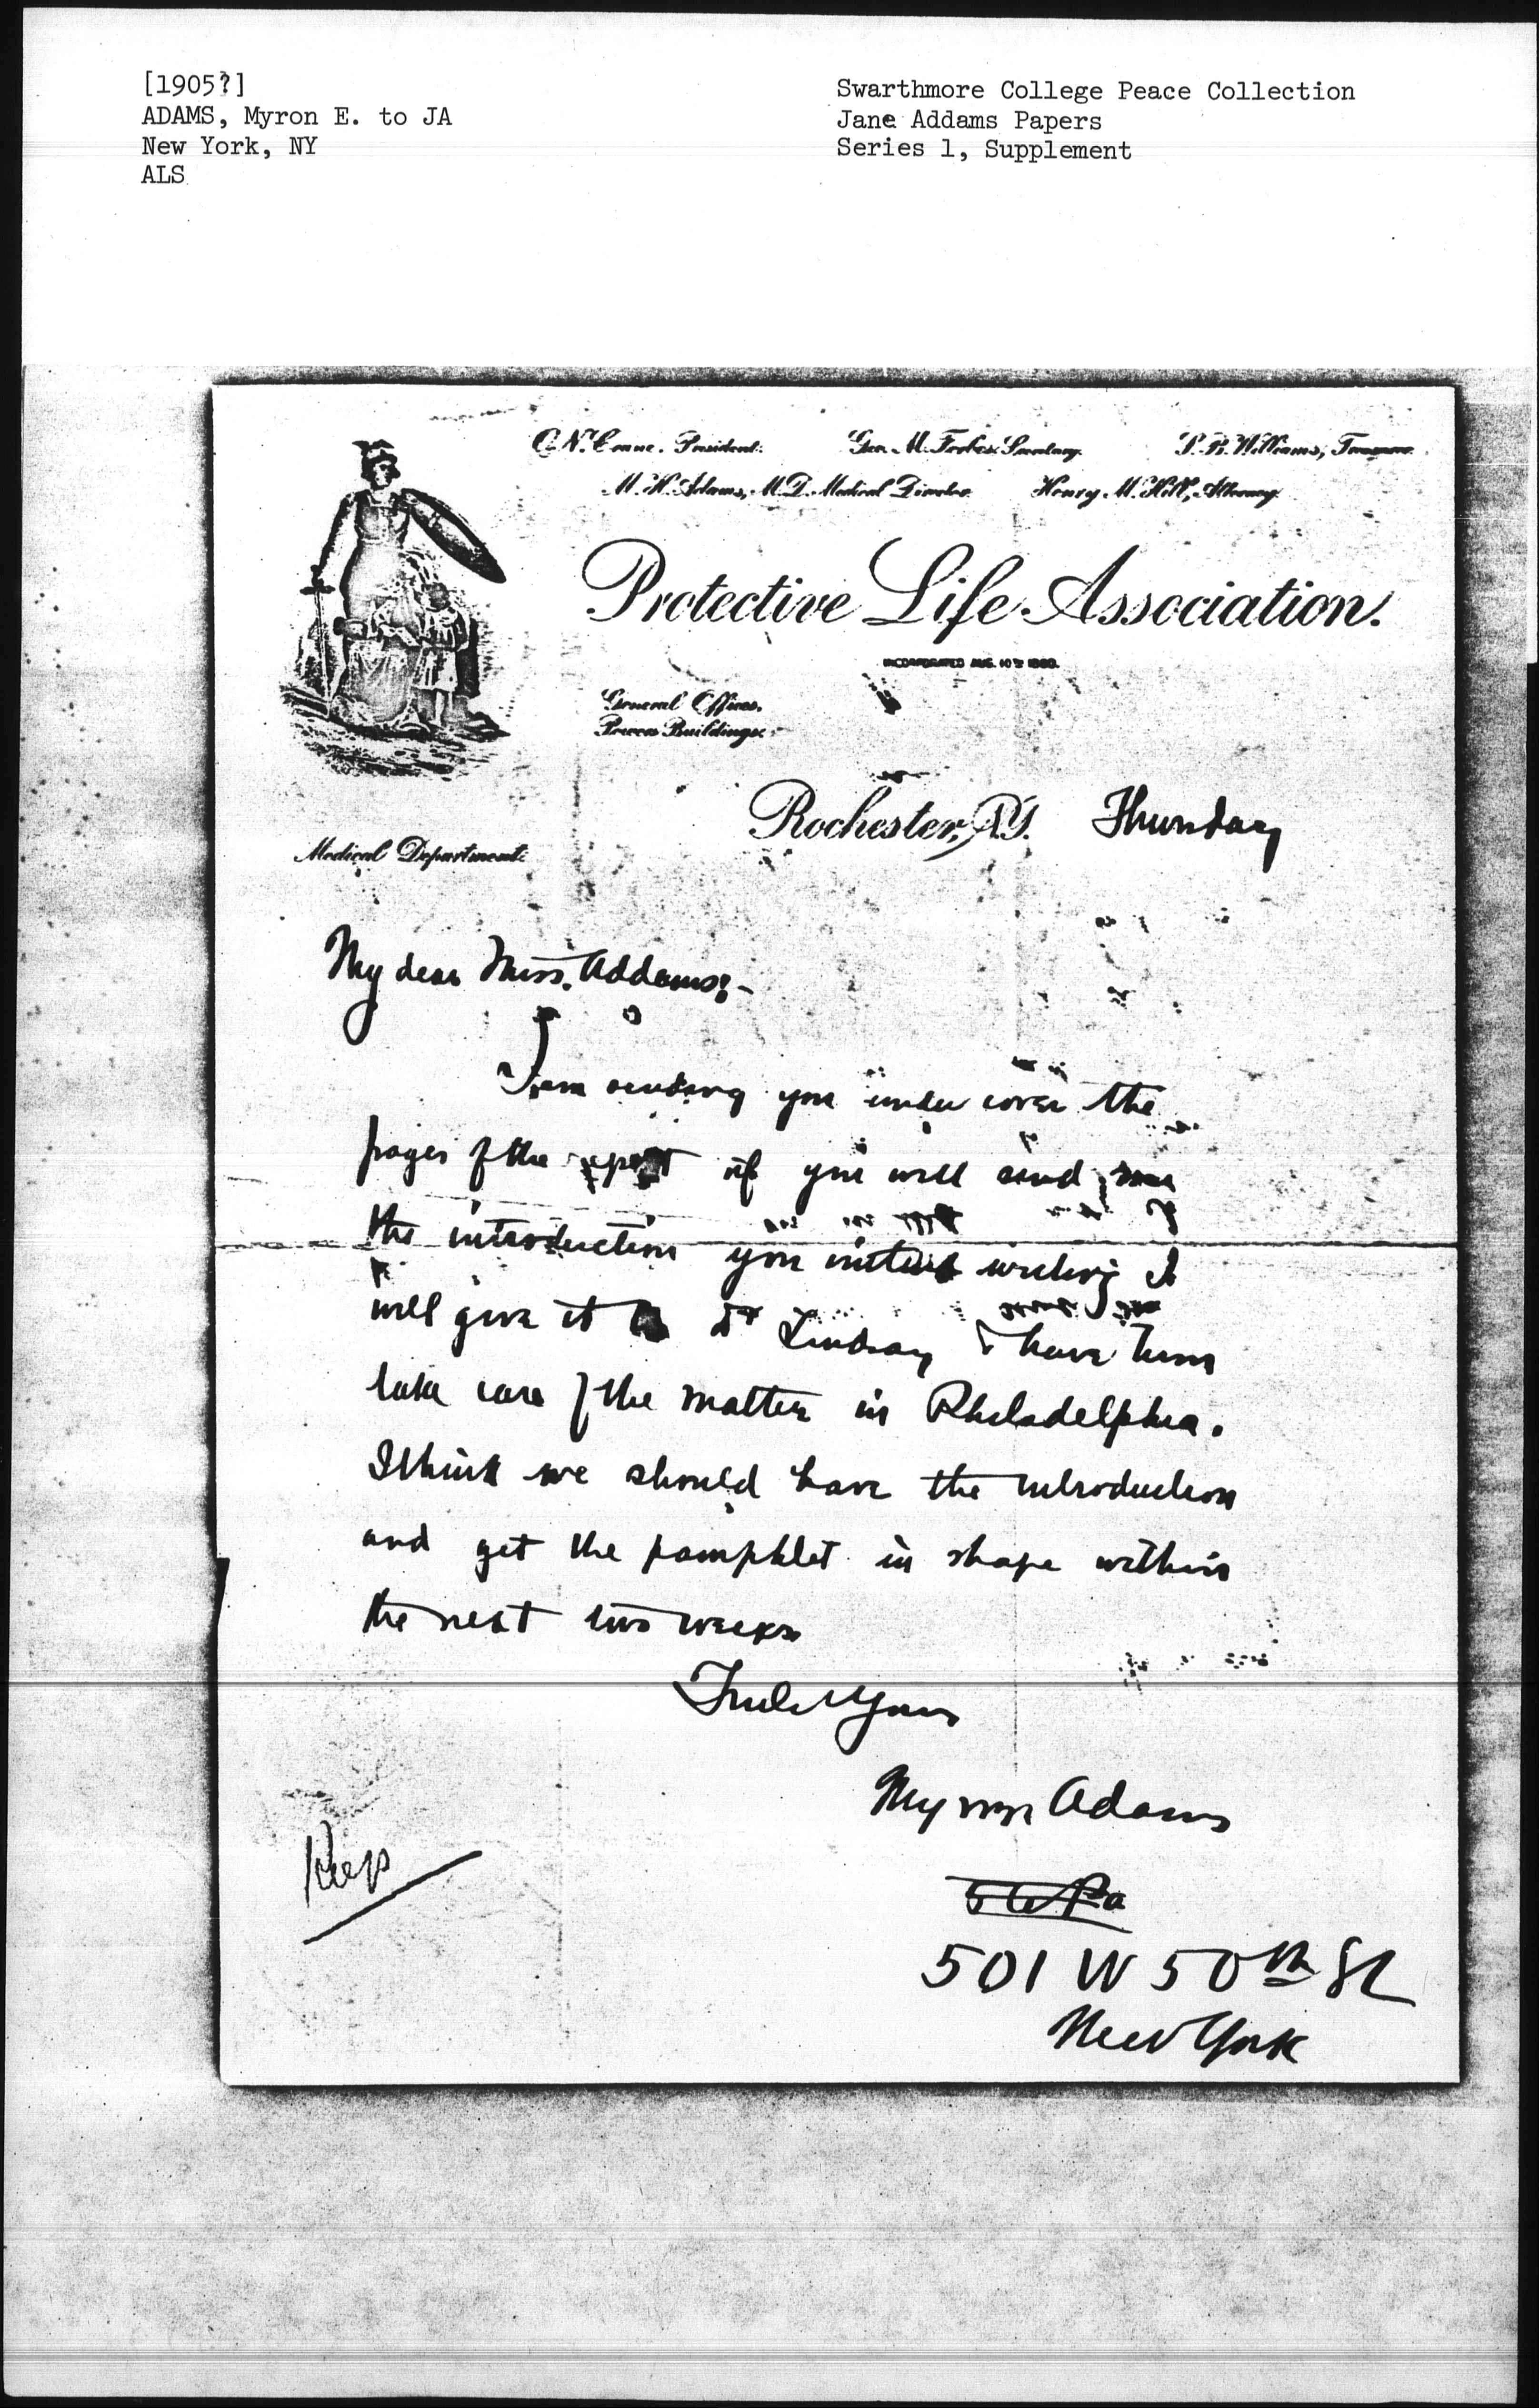 [1905?]
ADAMS, Myron E. to JA
New York, NY
ALS
Swarthmore College Peace Collection
Jane Addams Papers
Series 1, Supplement
President. Geo. M. Forbes Secretary. Williams, Treasurer.
M. H. Adams, M.D. Medical Director. Henry M. Hill, Attorney.
Protective Life Association.
INCORPORATED AUG. 10
General Offices.
Powers Buildings.
Rochester, N.Y. Thursday
Medical Department.
My dear Miss. Addams:-
I am sending you under cover the
pages of the report if you will send me
the introduction you intend writing I
will give it to Dr Lindsay & have him
take care of the matter in Philadelphia.
I think we should have the introduction
and get the pamphlet in shape within
the next two weeks
Truly Yours
Myron Adams
501 W 50th St
New York
Keep